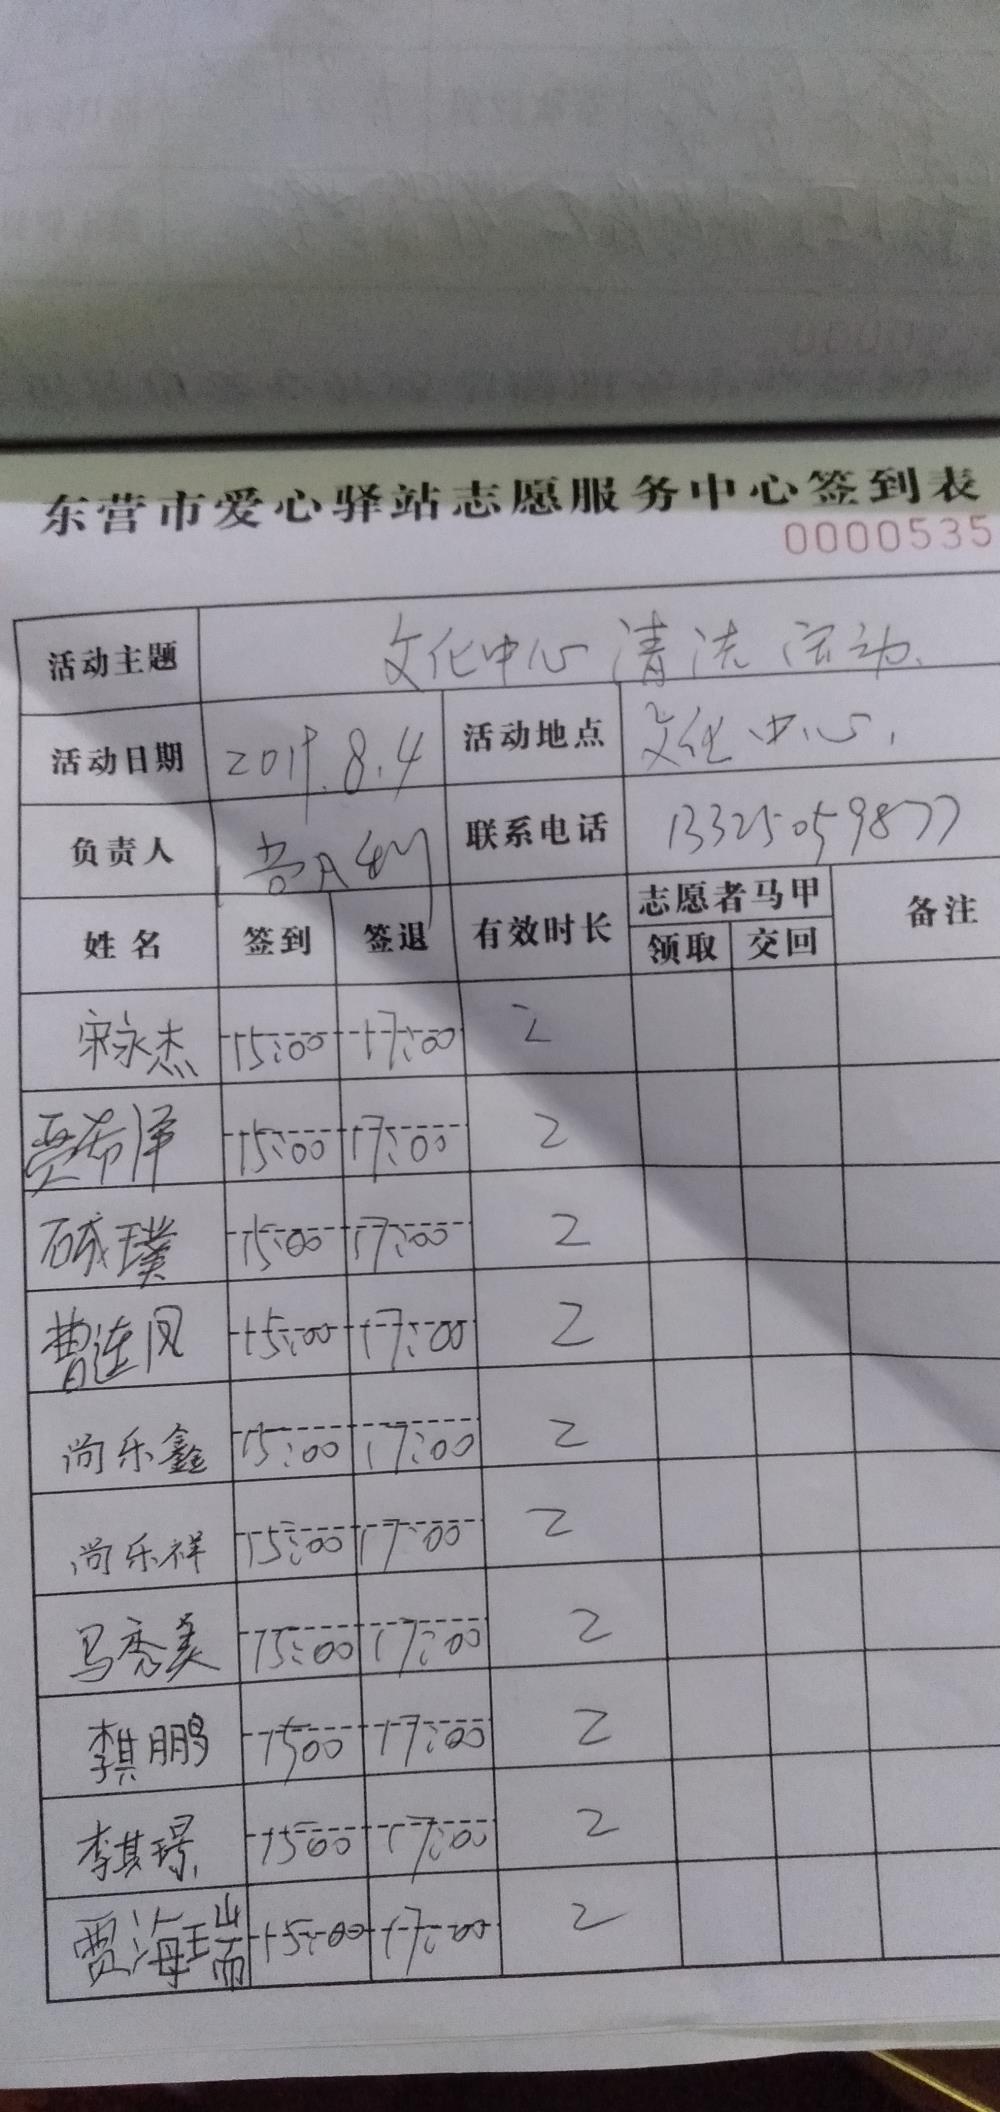 东营市爱心驿站志愿服务中心签到表
0000535
活动主题 文化中心清洗活动.
活动日期 2019.8.4 活动地点 文化中心.
负责人 联系电话 13325059877
姓名 签到 签退 有效时长 志愿者马甲 备注
领取 交回
宋永杰 15:00 17:00 2
贾希泽 15:00 17:00 2
石成璞 15:00 17:00 2
曹连凤 15:00 17:00 2
尚乐鑫 15:00 17:00 2
尚乐祥 15:00 17:00 2
马秀美 15:00 17:00 2
李其鹏 1500 17:00 2
李其璟 1500 17:00 2
贾海瑞 15:00 17:00 2